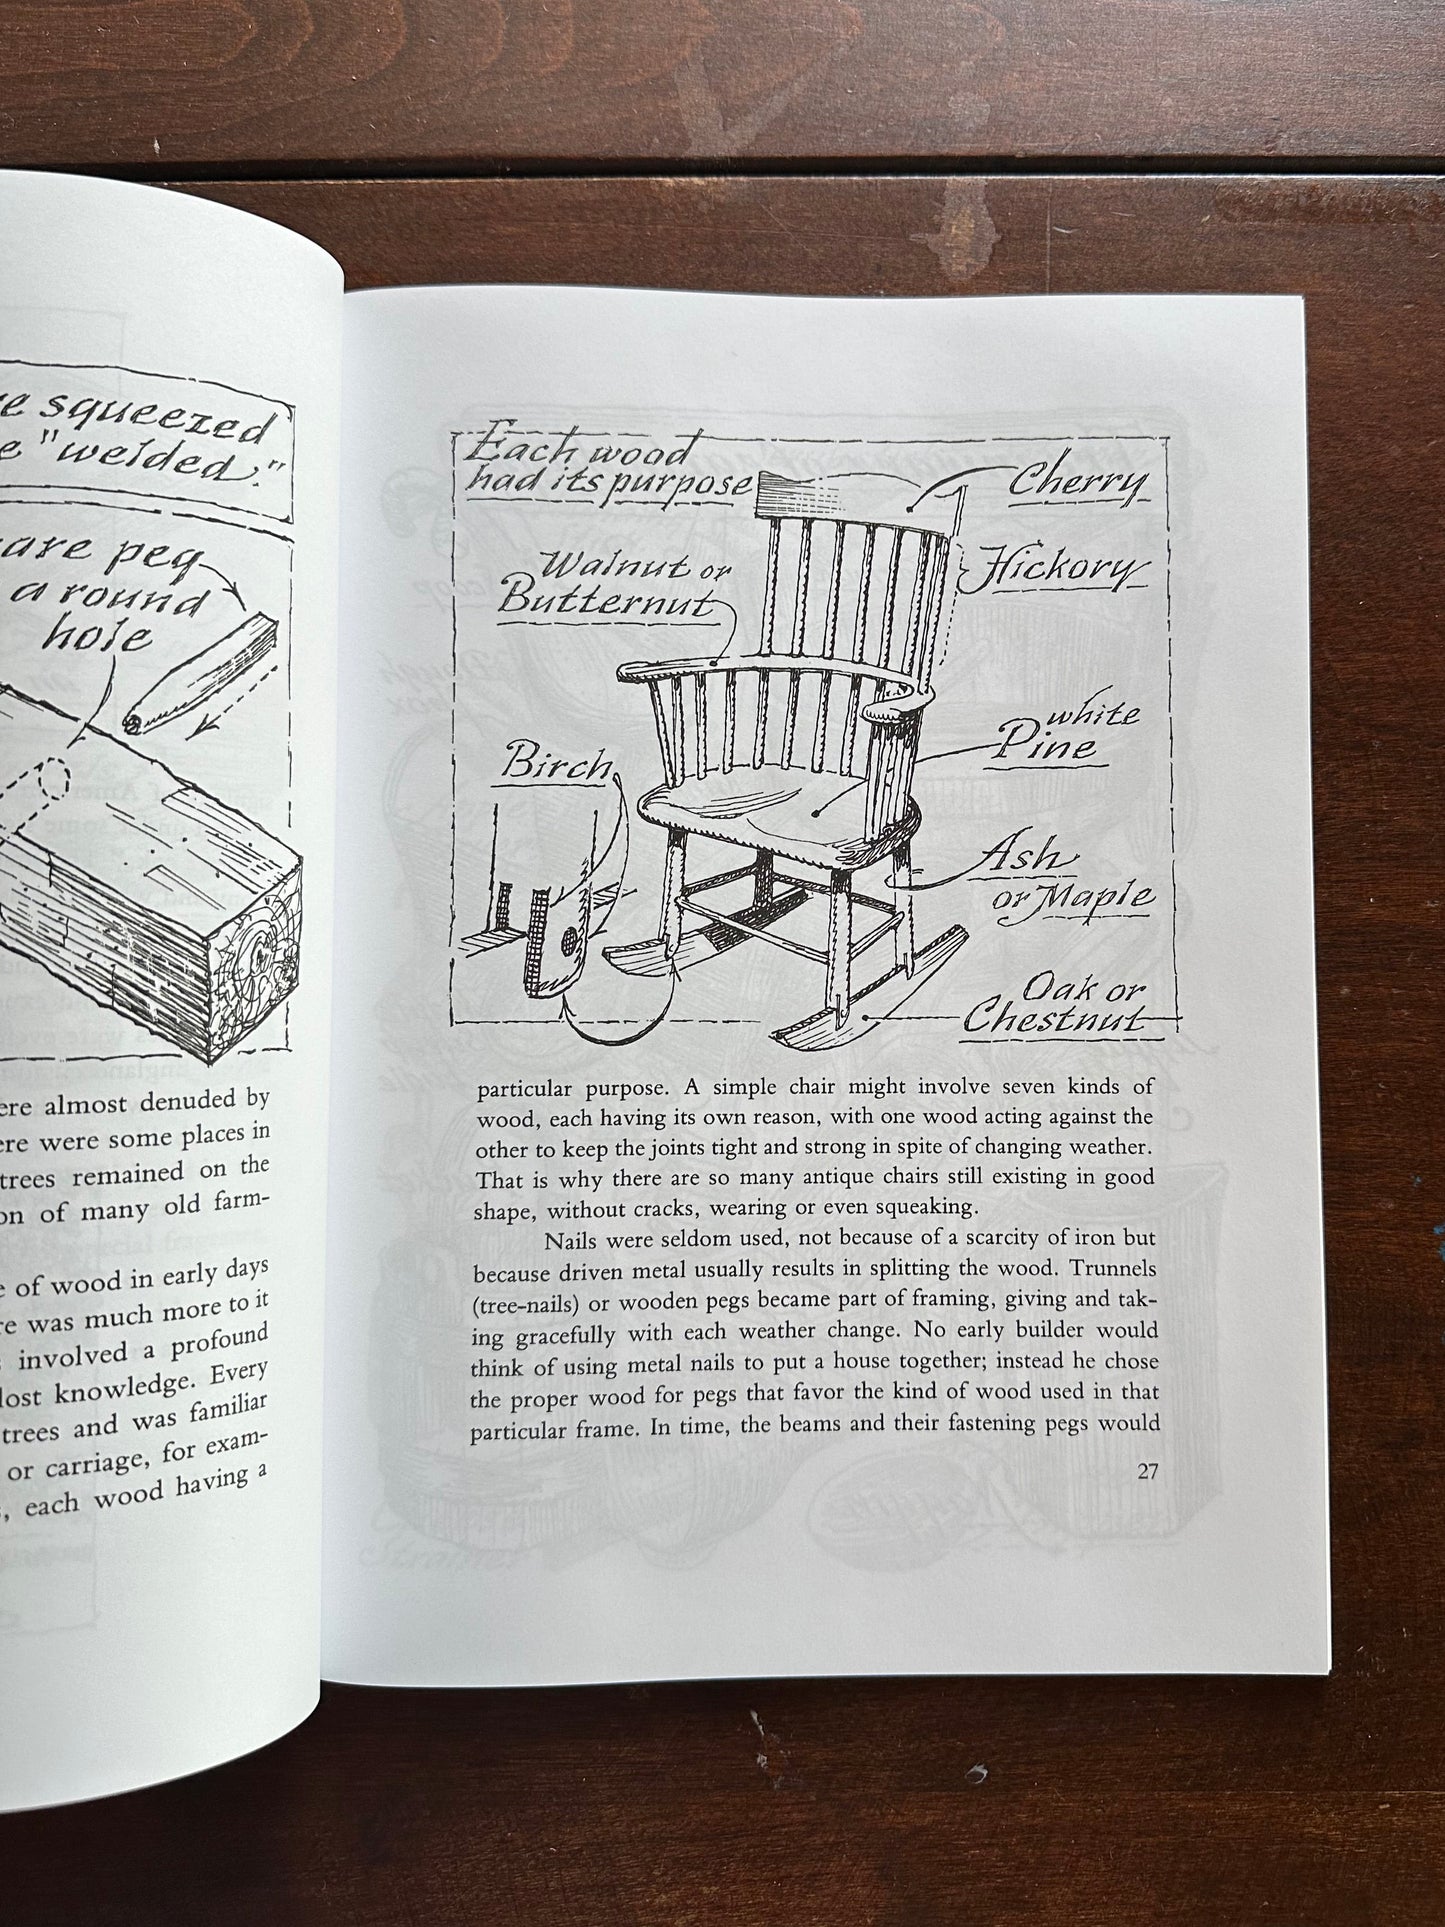 e squeezed
e "welded."
are peg
a round
hole
ere almost denuded by
ere were some places in
trees remained on the
on of many old farm-
e of wood in early days
re was much more to it
involved a profound
lost knowledge. Every
trees and was familiar
or carriage, for exam-
, each wood having a
Each wood
had its purpose
Cherry
Hickory
Walnut or
Butternut
white
Pine
Birch
Ash
or Maple
Oak or
Chestnut
particular purpose. A simple chair might involve seven kinds of
wood, each having its own reason, with one wood acting against the
other to keep the joints tight and strong in spite of changing weather.
That is why there are so many antique chairs still existing in good
shape, without cracks, wearing or even squeaking.
Nails were seldom used, not because of a scarcity of iron but
because driven metal usually results in splitting the wood. Trunnels
(tree-nails) or wooden pegs became part of framing, giving and tak-
ing gracefully with each weather change. No early builder would
think of using metal nails to put a house together; instead he chose
the proper wood for pegs that favor the kind of wood used in that
particular frame. In time, the beams and their fastening pegs would
27